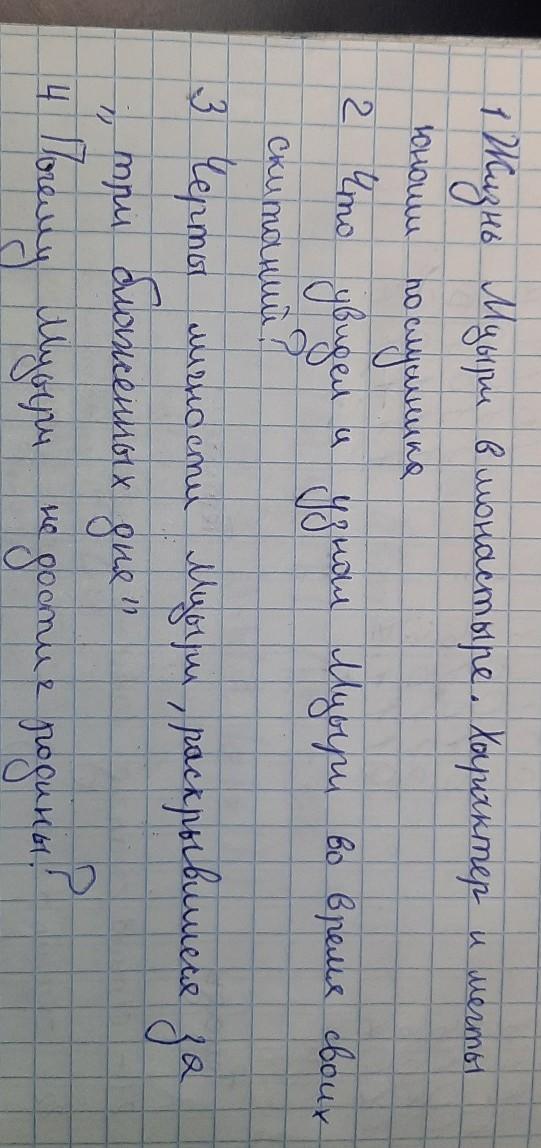 1 Жизнь Мцыри в монастыре. Характер и мечты
юноши послушника
2 Что увидел и узнал Мцыри во время своих
скитаний?
3 Черты личности Мцыри, раскрывшиеся за
„три блаженных дня"
4 Почему Мцыри не достиг родины?